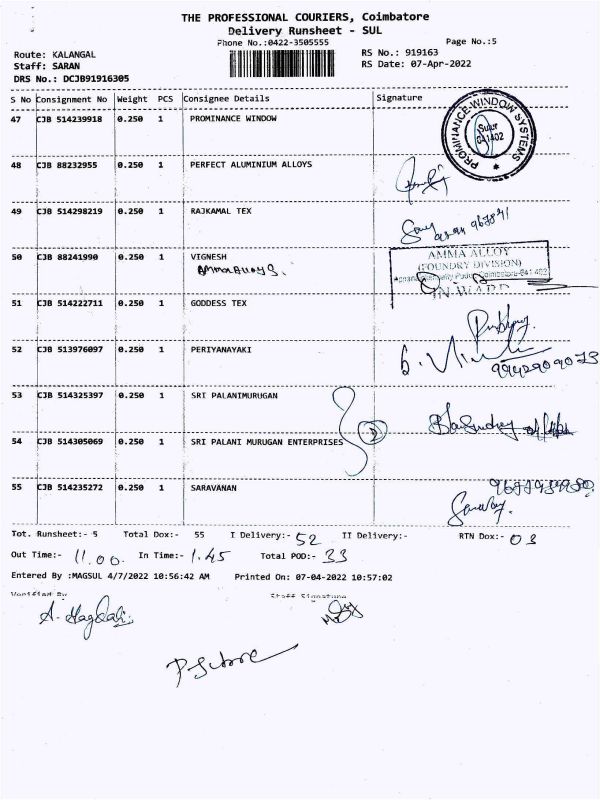 THE PROFESSIONAL COURIERS, Coimbatore
Delivery Runsheet - SUL
Phone No.:0422-3505555
Page No.:5
Route: KALANGAL
RS No.: 919163
Staff: SARAN
RS Date: 07-Apr-2022
DRS No.: DCJB91916305
S No Consignment No Weight PCS Consignee Details Signature
47 CJB 514239918 0.250 1 PROMINANCE WINDOW
PROMINANCE-WINDOW SYSTEMS
Sulur
641402
48 CJB 88232955 0.250 1 PERFECT ALUMINIUM ALLOYS
49 CJB 514298219 0.250 1 RAJKAMAL TEX
50 CJB 88241990 0.250 1 VIGNESH
AMMA Alloys.
AMMA ALLOY
(FOUNDRY DIVISION)
Coimbatore-641 402
IN-WARD
51 CJB 514222711 0.250 1 GODDESS TEX
52 CJB 513976097 0.250 1 PERIYANAYAKI
9942909073
53 CJB 514325397 0.250 1 SRI PALANIMURUGAN
54 CJB 514305069 0.250 1 SRI PALANI MURUGAN ENTERPRISES
2
55 CJB 514235272 0.250 1 SARAVANAN
Tot. Runsheet:- 5 Total Dox:- 55 I Delivery:- 52 II Delivery:- RTN Dox:- 03
Out Time:- 11.00. In Time:- 1.45 Total POD:- 33
Entered By :MAGSUL 4/7/2022 10:56:42 AM Printed On: 07-04-2022 10:57:02
Verified By Staff Signature